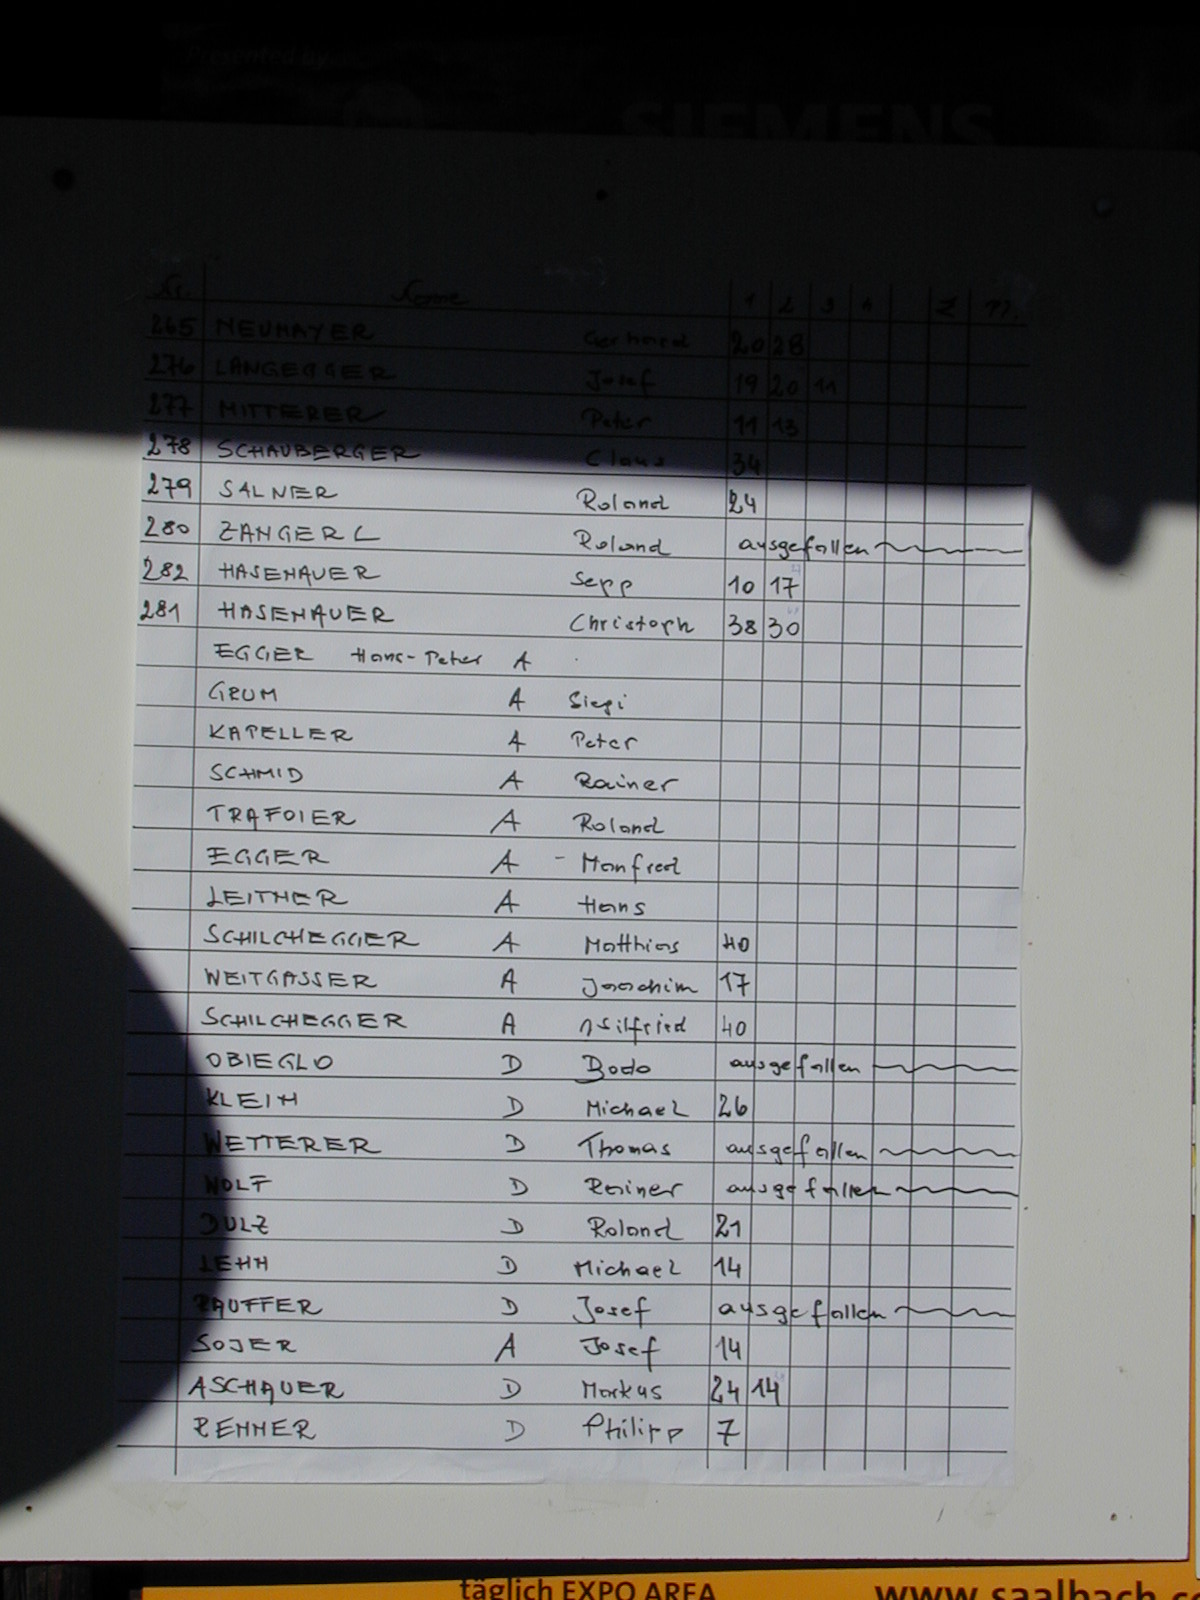 Presented by
SIEMENS
Nr. Name 1 2 3 4 Z
265 NEUMAYER Gerhard 20 28
276 LANGEGGER Josef 19 20 11
277 MITTERER Peter 11 13
278 SCHAUBERGER Claus 34
279 SALNER Roland 24
280 ZANGERL Roland ausgefallen
282 HASENAUER Sepp 10 17
281 HASENAUER Christoph 38 30
EGGER Hans-Peter A
GRUM A Siegi
KAPELLER A Peter
SCHMID A Rainer
TRAFOIER A Roland
EGGER A - Manfred
LEITNER A Hans
SCHILCHEGGER A Matthias 40
WEITGASSER A Joachim 17
SCHILCHEGGER A Wilfried 40
OBIEGLO D Bodo ausgefallen
KLEIN D Michael 26
WETTERER D Thomas ausgefallen
WOLF D Reiner ausgefallen
SULZ D Roland 21
LEHN D Michael 14
RAUFFER D Josef ausgefallen
SOJER A Josef 14
ASCHAUER D Markus 24 14
RENNER D Philipp 7
täglich EXPO AREA www.saalbach.c